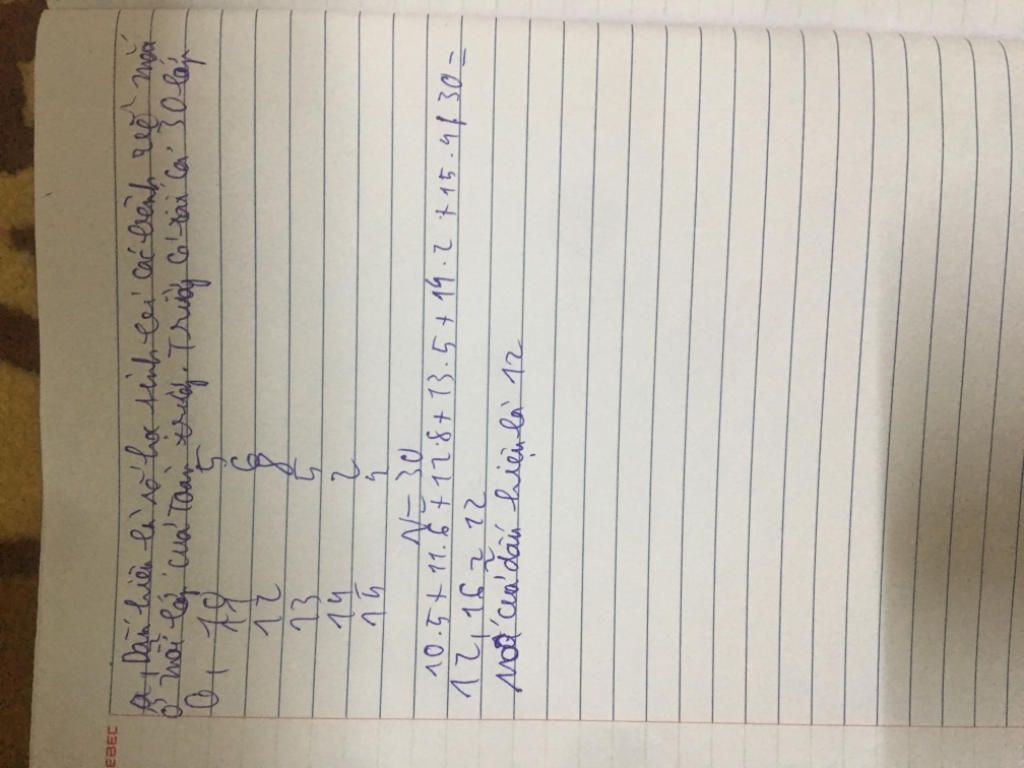 a, Dấu hiệu là số học sinh có các bệnh về mắt
ở mỗi lớp của toàn trường. Trường có tất cả 30 lớp
b, 10 5
11 6
12 8
13 5
14 2
15 4
N = 30
10.5 + 11.6 + 12.8 + 13.5 + 14.2 + 15.4 / 30 =
12,16 ≈ 12
Mốt của dấu hiệu là 12
EBEC